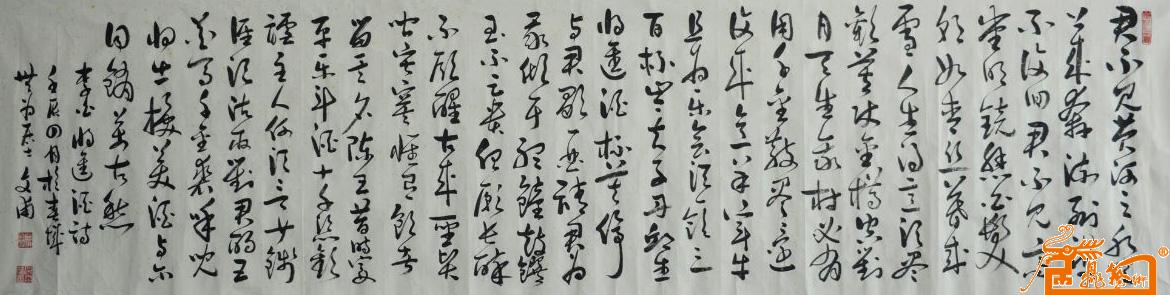 君不見黄河之水
上来奔流到海
不復回君不见高
堂明镜悲白髮
朝如青丝暮成
雪人生得意须尽
歡莫使金樽空对
月天生我材必有
用千金散尽还
復来烹羊宰牛
且为乐会须一饮三
百杯岑夫子丹丘生
将進酒杯莫停
与君歌一曲請君为
我倾耳听鐘鼓饌
玉不足贵但願长醉
不願醒古来圣贤
皆寂寞惟有饮者
留其名陈王昔时宴
平乐斗酒十千恣歡
謔主人何须言少钱
徑须沽取對君酌五
花马千金裘呼儿
将出换美酒与尔
同銷萬古愁
李白将進酒詩
壬辰四月於
居士文